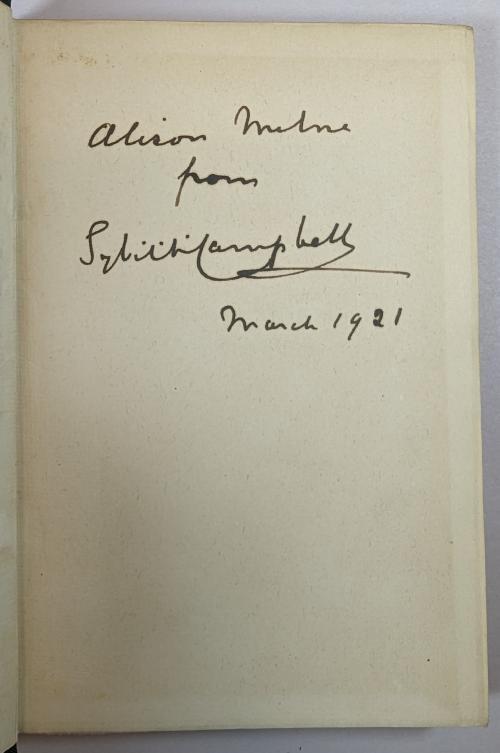 Alison Milne
from
Sybil Campbell
March 1921